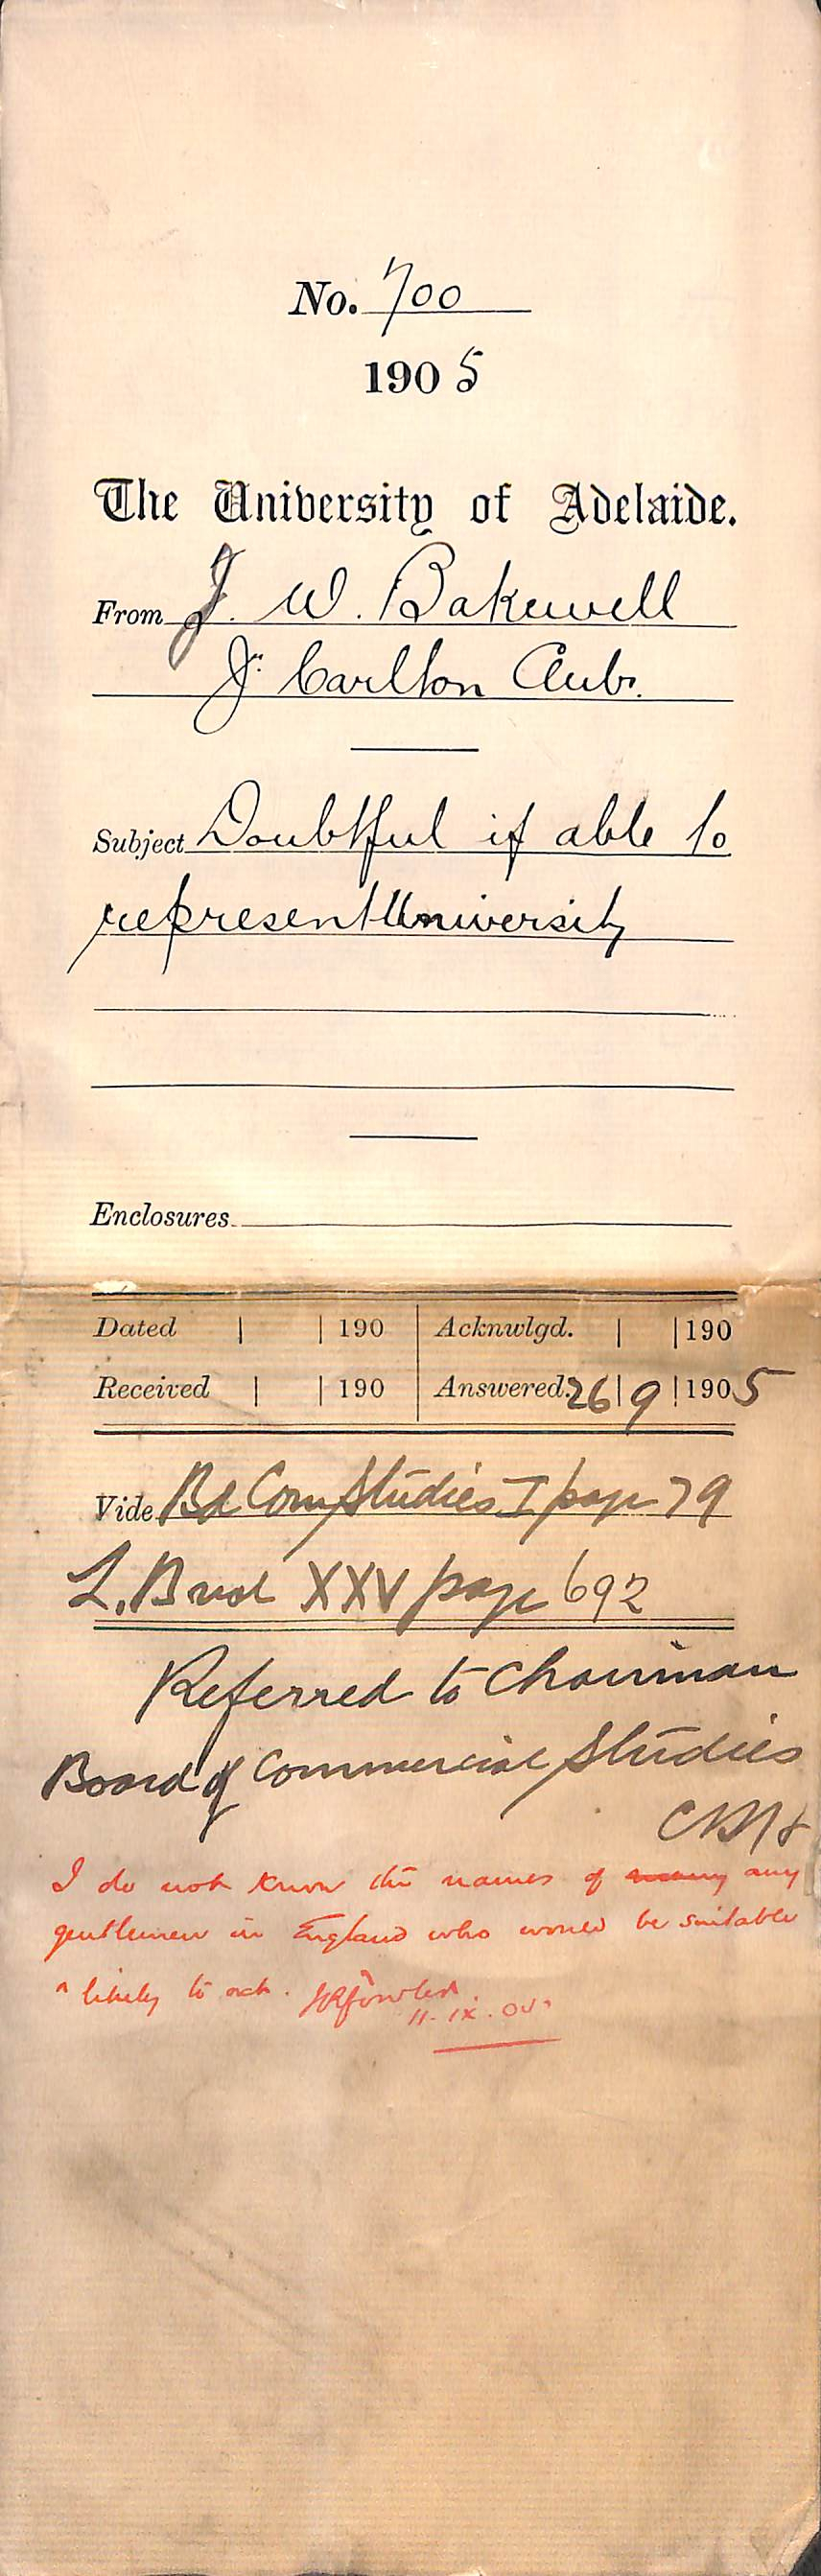 No. 700
1905
The University of Adelaide.
From J. W. Bakewell
Jr. Carlton Club.
Subject Doubtful if able to
represent University
Enclosures
Dated | | 190 | Acknwlgd. | | 190
Received | | 190 | Answered. 26 | 9 | 1905
Vide Bd Com Studies I page 79
L. B vol XXV page 692
Referred to Chairman
Board of Commercial Studies
I do not know the names of many any
gentlemen in England who would be suitable
likely to act. JRFowler
11.IX.05